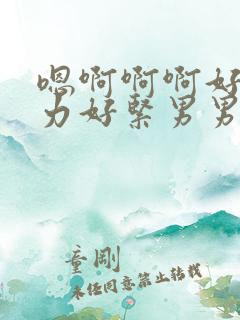 嗯啊啊啊好
力好緊男男
童剛
未经同意禁止转载